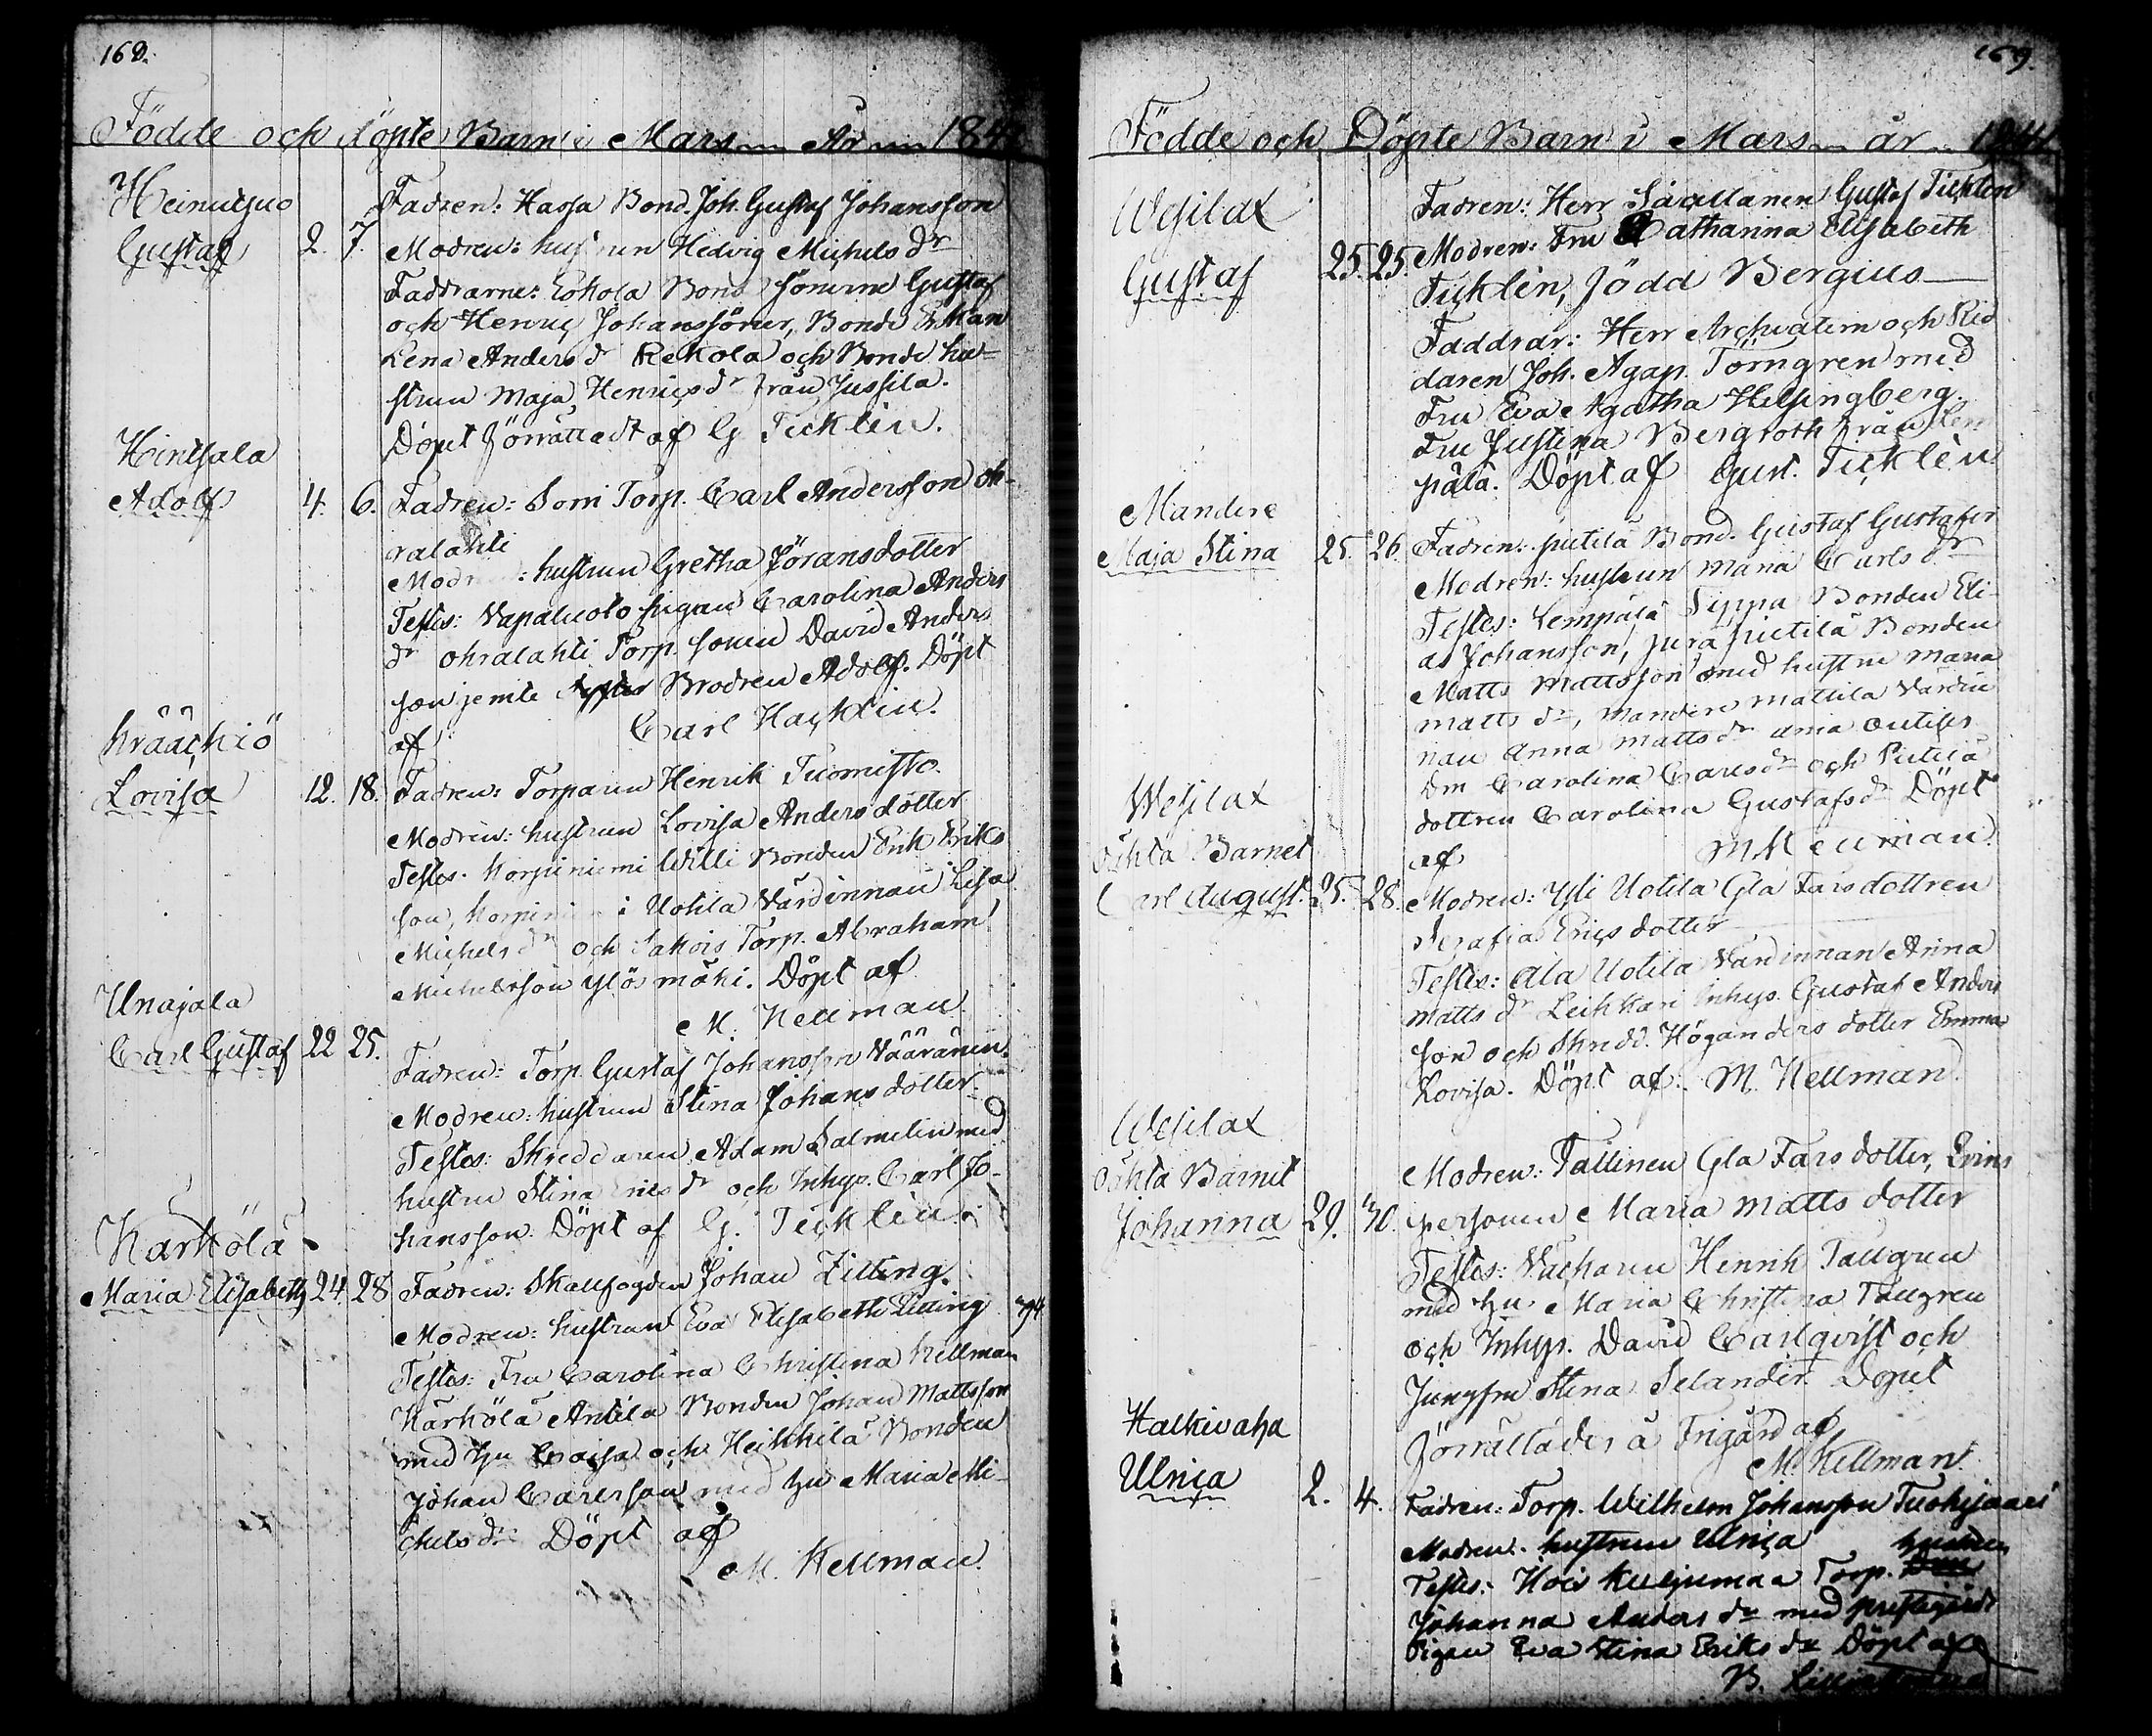 168.
Födde och döpte Barn i Mars År 184
Heinusuo
Gustaf 2. 7.
Fadren: Hassa Bond. Joh. Gustaf Johansson
Modren: hustrun Hedvig Michels dr
Faddrarne: Eskola Bond sönerne Gustaf
och Henric Johanssöner, Bonde Enkan
Lena Anders dr Rekola och Bonde hu-
strun Maja Henrics dr från Jussila.
Döpt förrättadt af G Ticklén.
Hintsala
Adolf 4. 6.
Fadren: Torp. Carl Andersson oh-
ralahti
Modren: hustrun Gretha Jöransdotter
Testes: Vapaluoto pigan Carolina Anders
dr ohralahti Torp. sonen David Anders
son jemte Brodren Adolf. Döpt
af Carl Hacklin.
Krääckiö
Lovisa 12. 18.
Fadren: Torparen Henrik Tuomisto.
Modren: hustrun Lovisa Andersdotter
Testes. Korpiniemi Willi Bonden Erik Eriks
son, Uotila Värdinnan Lisa
Michels dr och Torp. Abraham
Michelsson Ylösmäki. Döpt af
M. Hellman
Unajala
Carl Gustaf 22 25.
Fadren: Torp. Gustaf Johansson Vääränen.
Modren: hustrun Stina Johansdotter.
Testes: Skreddaren Adam Salmelin med
hustru Stina dr och Inhys. Carl Jo-
hansson. Döpt af G. Ticklén.
Kärkölä
Maria Elisabeth 24. 28
Fadren: Skallfogden Johan Zitting.
Modren: hustrun Eva Elisabeth Zitting
Testes: Fru Carolina Christina Hellman
Kärkölä Antila Bonden Johan Mattsson
med hu Caisa och Heikkilä Bonden
Johan Carlsson med hu Maria Mi-
chels dr. Döpt af
M. Hellman.
169.
Födde och Döpte Barn i Mars år 1844
Wesilax
Gustaf 25. 25.
Fadren: Herr Gustaf Ticklén
Modren: Fru Catharina Elisabeth
Ticklén, född Bergius
Faddrar: Herr Archiatern och Rid
daren Joh. Agap. Törngren med
Fru Eva Agatha Helsingberg.
Fru Justina Bergroth från Lem
pälä. Döpt af Gust. Ticklén
Mandere
Maja Stina 25. 26.
Fadren: Pietilä Bond. Gustaf Gustafss
Modren: hustrun Maria Carls dr
Testes: Lempälä Bonden Eli-
as Johansson, Pietilä Bonden
Matts Mattsson med hustru Maria
Matts dr, Mandere Mattila Värdin
nan Anna Matts dr
Carolina Carls dr och Pietilä
dottren Carolina Gustafs dr Döpt
af M. Hellman.
Wesilax
oäkta Barnet
Carl August. 25. 28.
Modren: Yli Uotila Gla Farsdottren
Serafia Ericsdotter
Testes: Ala Uotila Värdinnan Anna
Matts dr Leikkari Inhys. Gustaf Anders
son och Skredd. Höganders dotter Emma
Lovisa. Döpt af M. Hellman
Wesilax
oäkta Barnet
Johanna 29. 30.
Modren: Tallinen Gla Farsdotter,
personen Maria Mattsdotter
Testes: Henrik Tallgren
med hu Maria Christina Tallgren
och Inhys. David Carlqvist och
Jungfru Stina Selander. Döpet
förrättades å Frigård af
M. Hellman.
Halkivaha
Ulrica 2. 4.
Fadren: Torp. Wilhelm Johansson
Modren: hustrun Ulrica
Testes: Torp. hustrun
Johanna Anders dr med
Pigan Eva Stina Eriks dr Döpt af
B.